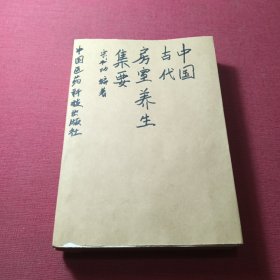 中国
古代
房室养生
集要
宋书功 编著
中国医药科技出版社